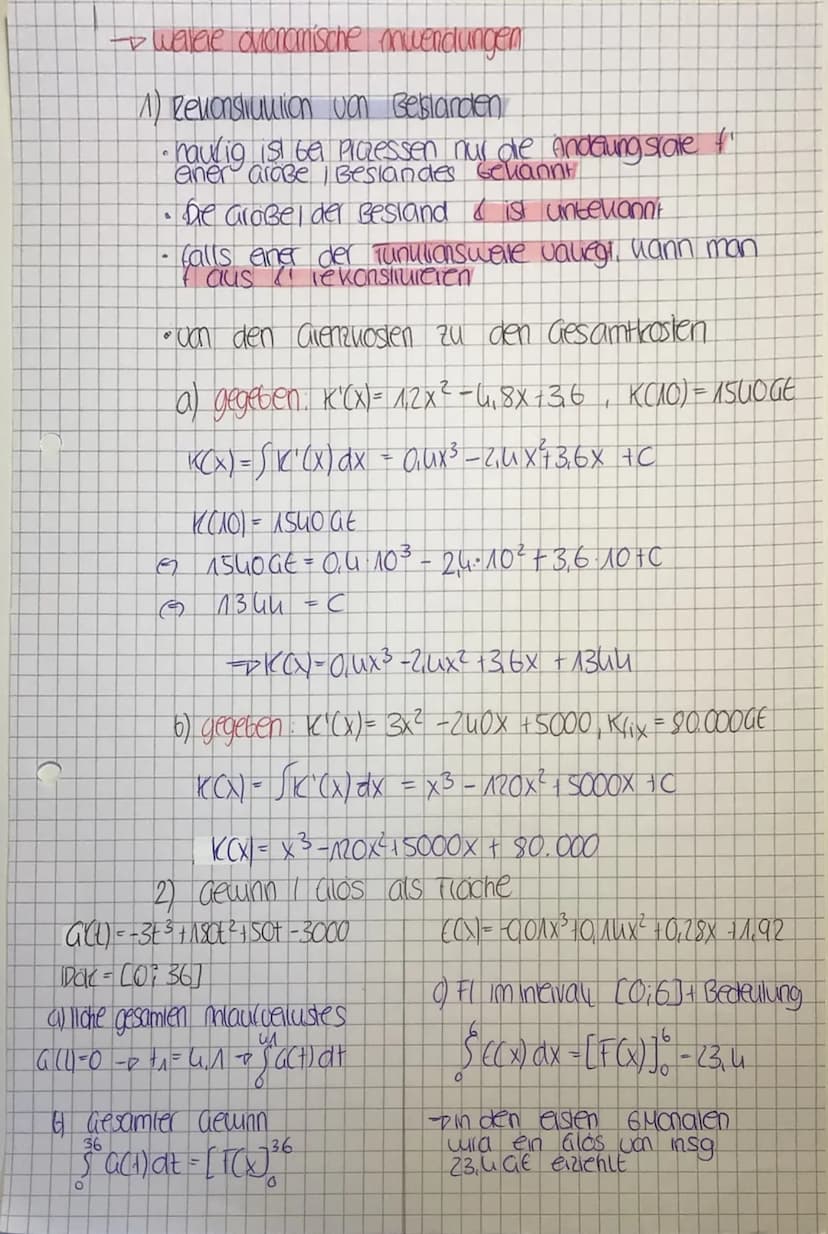 → weitere ökonomische Anwendungen
1) Rekonstruktion von Beständen
• häufig ist bei Prozessen nur die Änderungsrate f'
einer Größe / Bestandes bekannt
• Die Größe / der Bestand f ist unbekannt
• falls einer der Funktionswerte vorliegt, kann man
f aus f' rekonstruieren
• von den Grenzkosten zu den Gesamtkosten
a) gegeben: K'(x) = 1,2x² - 4,8x + 3,6 , K(10) = 1540 GE
K(x) = ∫K'(x) dx = 0,4x³ - 2,4x² + 3,6x + C
K(10) = 1540 GE
⇔ 1540 GE = 0,4·10³ - 2,4·10² + 3,6·10 + C
⇔ 1344 = C
→ K(x) = 0,4x³ - 2,4x² + 3,6x + 1344
b) gegeben: K'(x) = 3x² - 240x + 5000, Kfix = 80.000 GE
K(x) = ∫K'(x) dx = x³ - 120x² + 5000x + C
K(x) = x³ - 120x² + 5000x + 80.000
2) Gewinn / Erlös als Fläche
G(t) = -3t³ + 180t² + 50t - 3000
Dök = [0; 36]
a) Höhe gesamten Anlaufverlustes
G(t) = 0 → t₁ = 4,1 → ∫₀^4,1 G(t) dt
b) Gesamter Gewinn
∫₀³⁶ G(t) dt = [F(x)]₀³⁶
E(x) = -0,01x³ + 0,14x² + 0,28x + 1,92
c) FI im Intervall [0;6] + Bedeutung
∫₀⁶ E(x) dx = [F(x)]₀⁶ = 23,4
→ in den ersten 6 Monaten
wird ein Erlös von insg
23,4 GE erziehlt